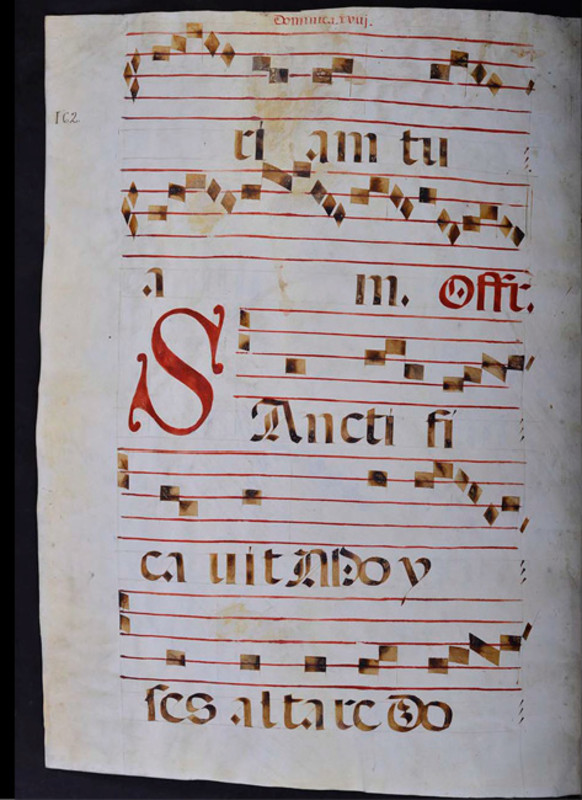 Dominica.xviij.
162.
ri am tu
a m. Offr.
SAncti fi
ca uit Moy
ses altare Do